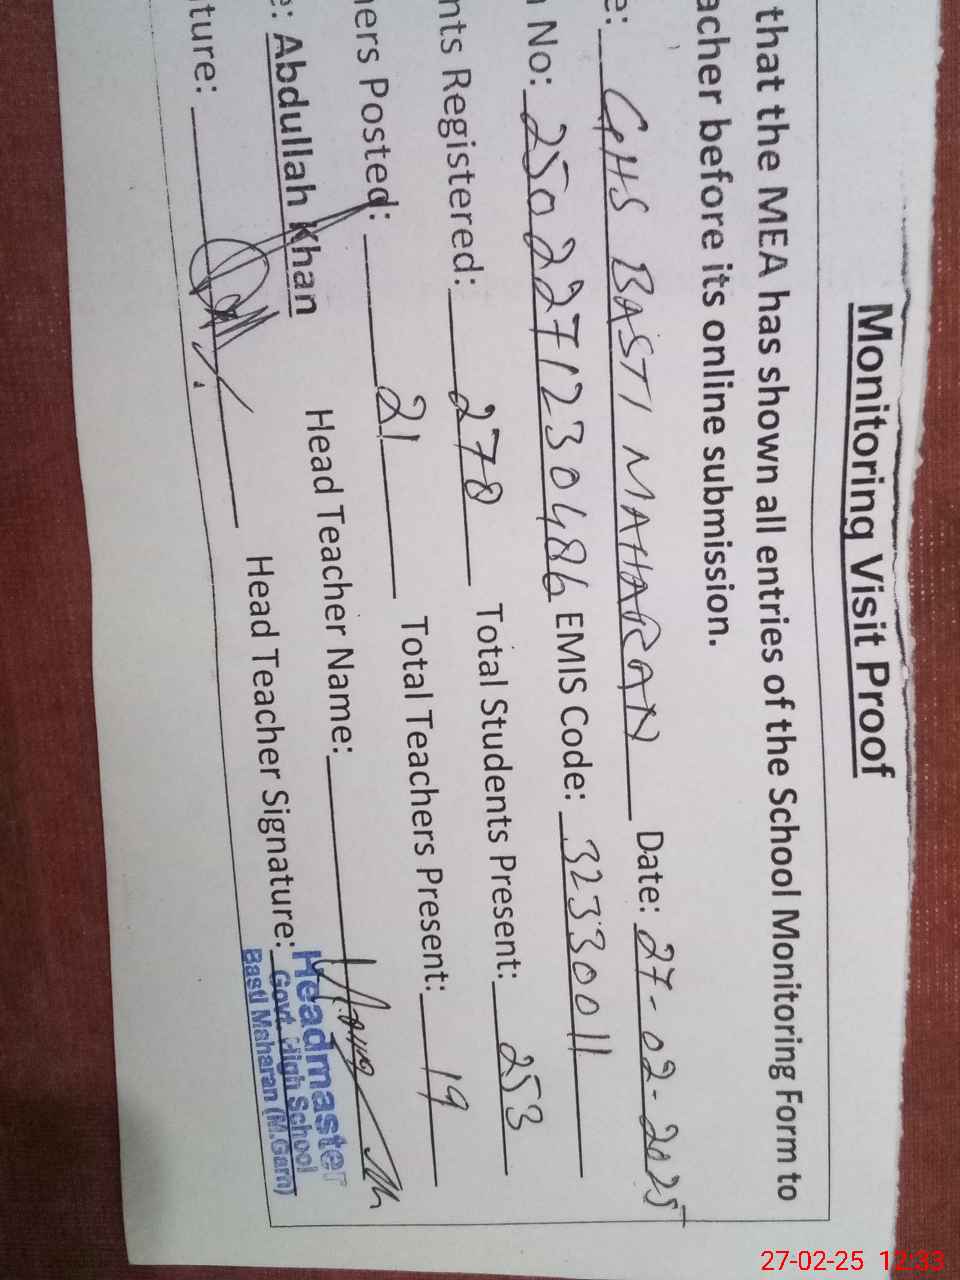 Monitoring Visit Proof
that the MEA has shown all entries of the School Monitoring Form to
acher before its online submission.
e: GHS BASTI MAHARAN Date: 27-02-2025
No: 2502271230486 EMIS Code: 32330011
nts Registered: 278 Total Students Present: 253
ners Posted: 21 Total Teachers Present: 19
e: Abdullah Khan Head Teacher Name:
ture: Head Teacher Signature:
Headmaster
Govt. High School
Basti Maharan (M.Garh)
27-02-25 12:33